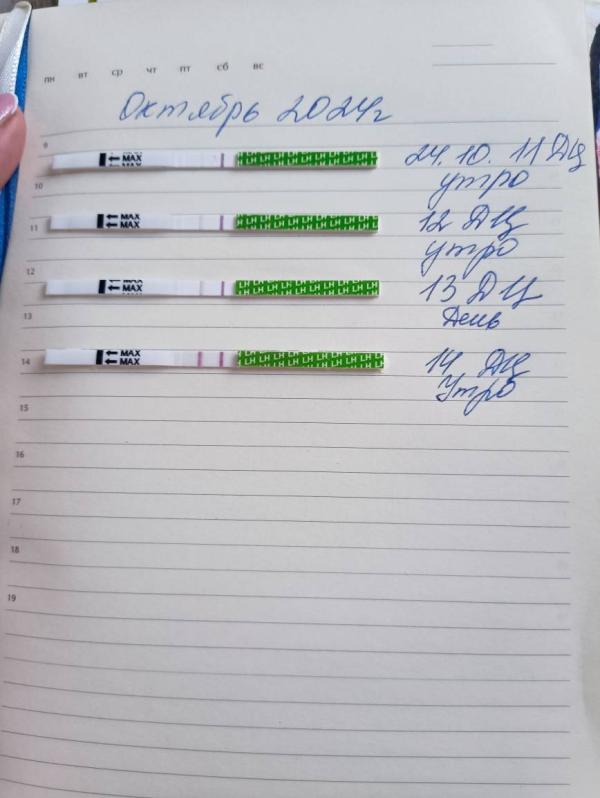 пн вт ср чт пт сб вс
Октябрь 2024г
9
MAX
LH LH LH LH LH LH LH LH
24.10. 11 ДЦ
утро
10
MAX
MAX
LH LH LH LH LH LH LH LH
12 ДЦ
11
утро
12
MAX
LH LH LH LH LH LH LH LH
13 ДЦ
13
День
14
MAX
MAX
LH LH LH LH LH LH LH LH
14 ДЦ
Утро
15
16
17
18
19